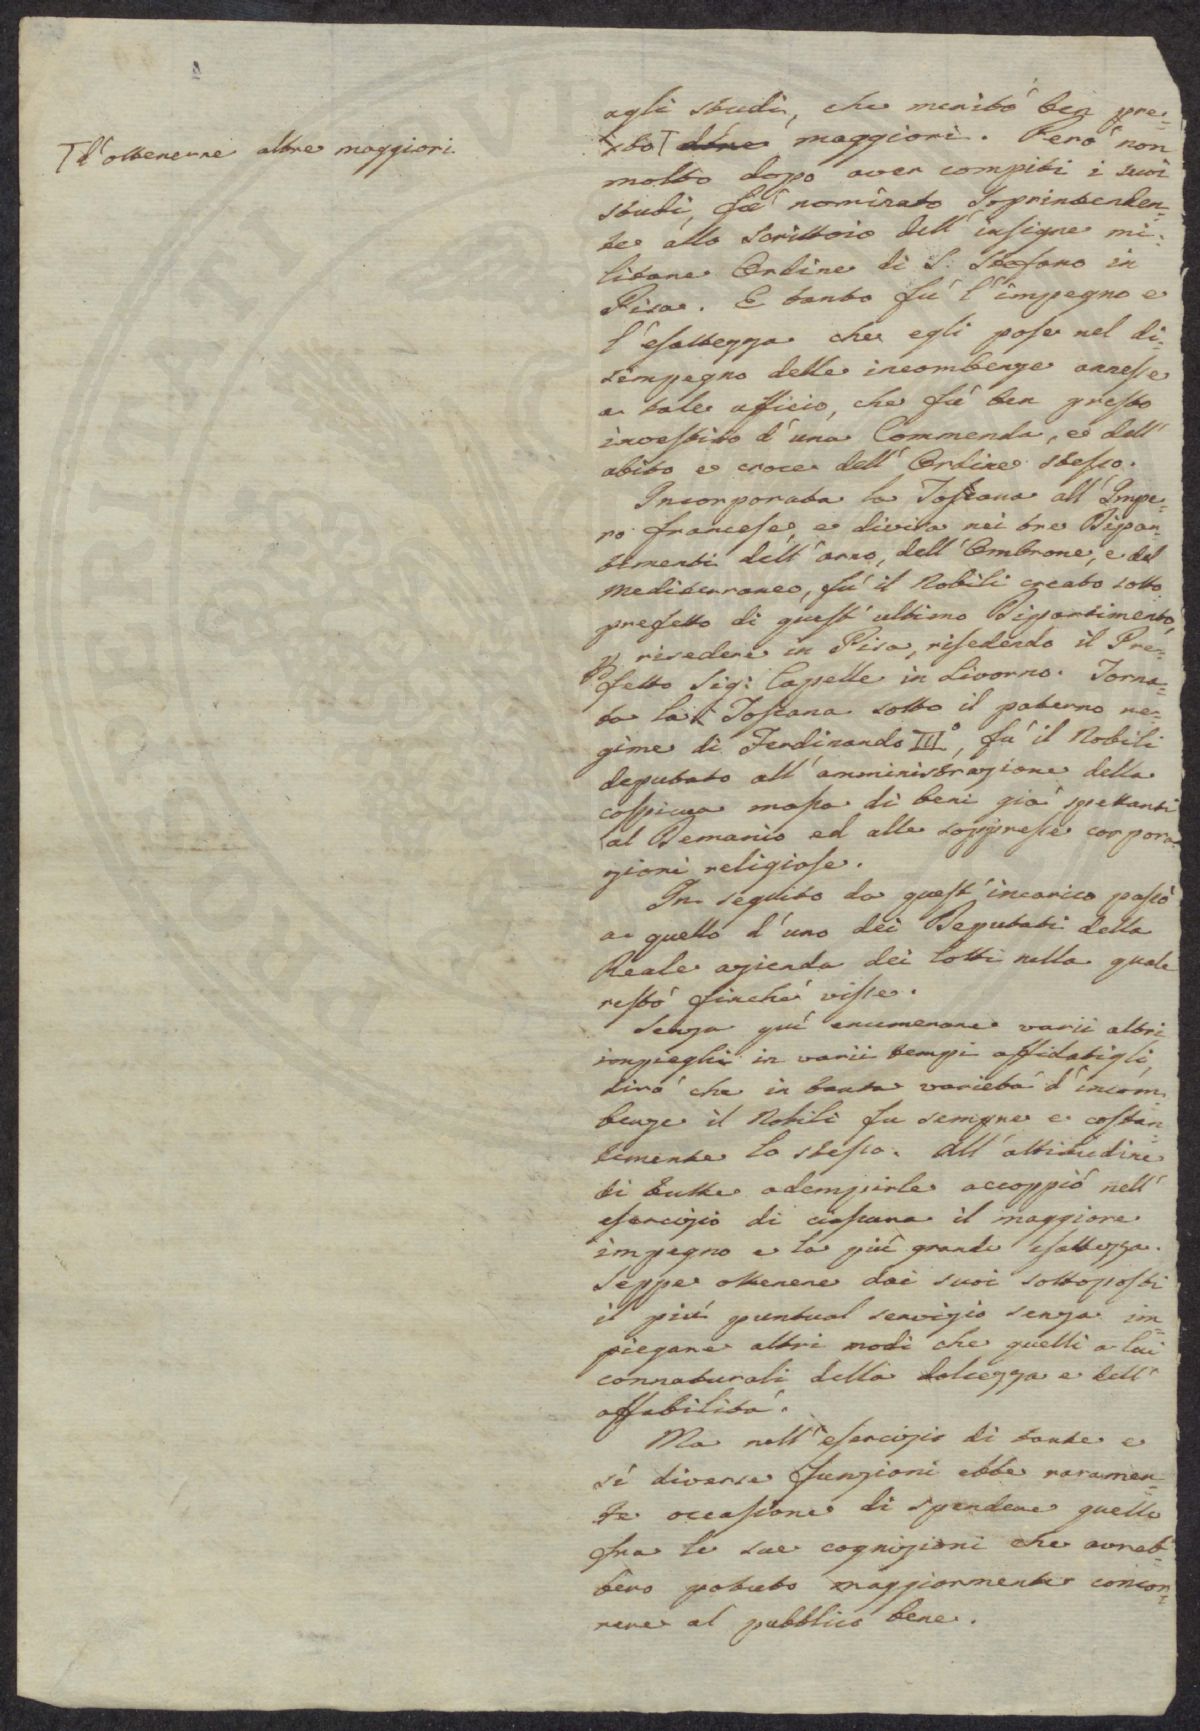 T d'ottenerne altre maggiori.
agli studi, che meritò ben pre=
sto T maggiori. Però non
molto dopo aver compiti i suoi
studi, fu' nominato Soprintenden=
te allo Scrittoio dell'insigne mi=
litare Ordine di S. Stefano in
Pisa. E tanto fu' l'impegno e
l'esattezza che egli pose nel di=
simpegno delle incombenze annesse
a tale officio, che fu' ben presto
investito d'una Commenda, e dell'
abito e croce dell'Ordine stesso.
Incorporata la Toscana all'Impe=
ro francese, e divisa nei tre Dipar=
timenti dell'arno, dell'Ombrone, e del
Mediterraneo, fu' il Nobili creato sotto
prefetto di quest'ultimo Dipartimento,
p risedere in Pisa, risedendo il Pre=
fetto Sig: Capelle in Livorno. Torna=
ta la Toscana sotto il paterno re=
gime di Ferdinando III°, fu' il Nobili
deputato all'amministrazione della
cospicua massa di beni già spettanti
al Demanio ed alle soppresse corpora=
zioni religiose.
In seguito da quest'incarico passò
a quello d'uno dei Deputati della
Reale azienda dei Lotti nella quale
restò finchè visse.
Senza quì enumerare varii altri
impieghi in varii tempi affidatigli,
dirò che in tanta varietà d'incom=
benze il Nobili fu sempre e costan=
temente lo stesso. All'attitudine
di tutte adempirle accoppiò nell'
esercizio di ciascuna il maggiore
impegno e la più grande esattezza.
Seppe ottenere dai suoi sottoposti
il più puntual servizio senza im=
piegare altri modi che quelli a lui
connaturali della dolcezza e dell'
affabilità.
Ma nell'esercizio di tante e
sì diverse funzioni ebbe raramen=
te occasione di spendere quelle
fra le sue cognizioni che avreb=
bero potuto maggiormente concor=
rere al pubblico bene.